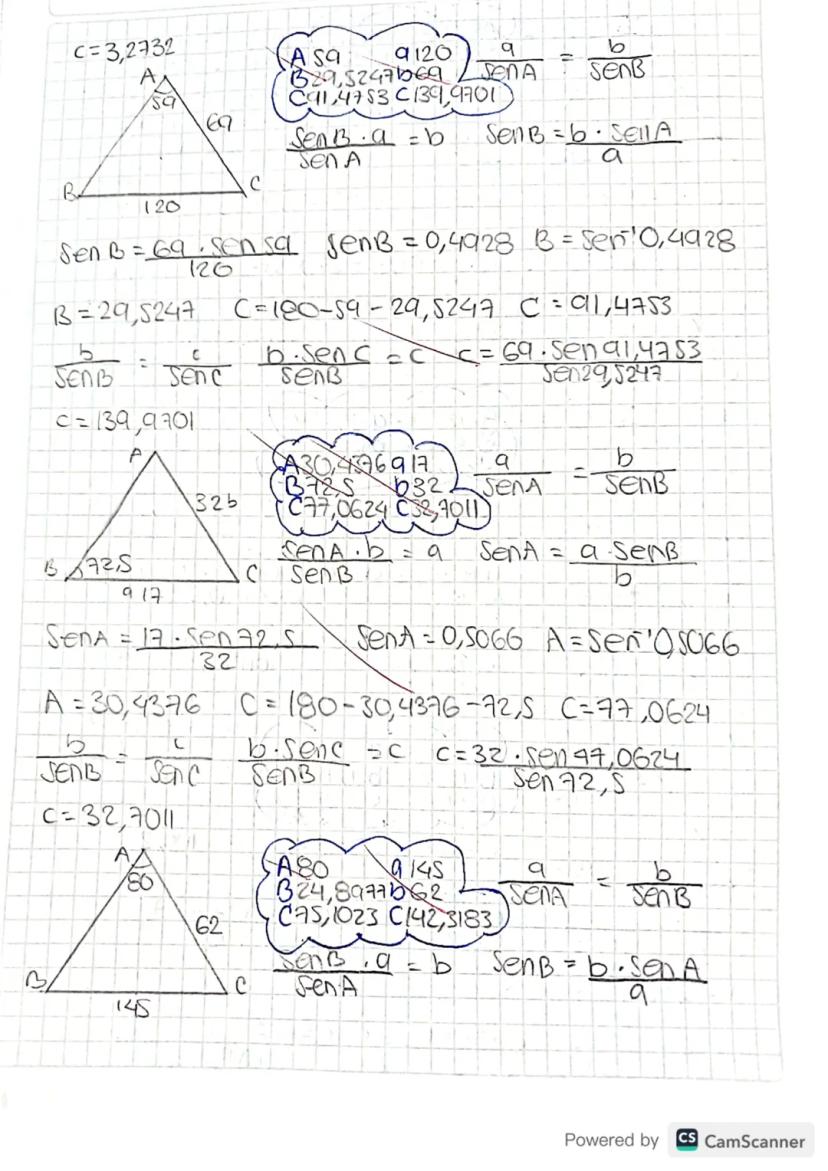 C=3,2732
A
59
69
B
C
120
A 59 a 120
B 29,5247 b 69
C 91,4753 C 139,9701
a/SenA = b/SenB
SenB · a/SenA = b SenB = b · SenA/a
SenB = 69 · sen 59/120 SenB = 0,4928 B = Sen⁻¹0,4928
B = 29,5247 C=180-59-29,5247 C = 91,4753
b/SenB = c/SenC b·SenC/SenB = C C = 69·Sen91,4753/Sen29,5247
C=139,9701
A
32b
B
72,5
C
a 17
A 30,4376 a 17
B 72,5 b 32
C 77,0624 C 32,7011
a/SenA = b/SenB
SenA · b/SenB = a SenA = a·SenB/b
SenA = 17·Sen72,5/32 SenA=0,5066 A=Sen⁻¹0,5066
A = 30,4376 C = 180-30,4376-72,5 C=77,0624
b/SenB = c/SenC b·SenC/SenB = C C=32·Sen77,0624/Sen72,5
C=32,7011
A
80
62
B
C
145
A 80 a 145
B 24,8977 b 62
C 75,1023 C 142,3183
a/SenA = b/SenB
SenB · a/SenA = b SenB = b·SenA/a
Powered by CS CamScanner